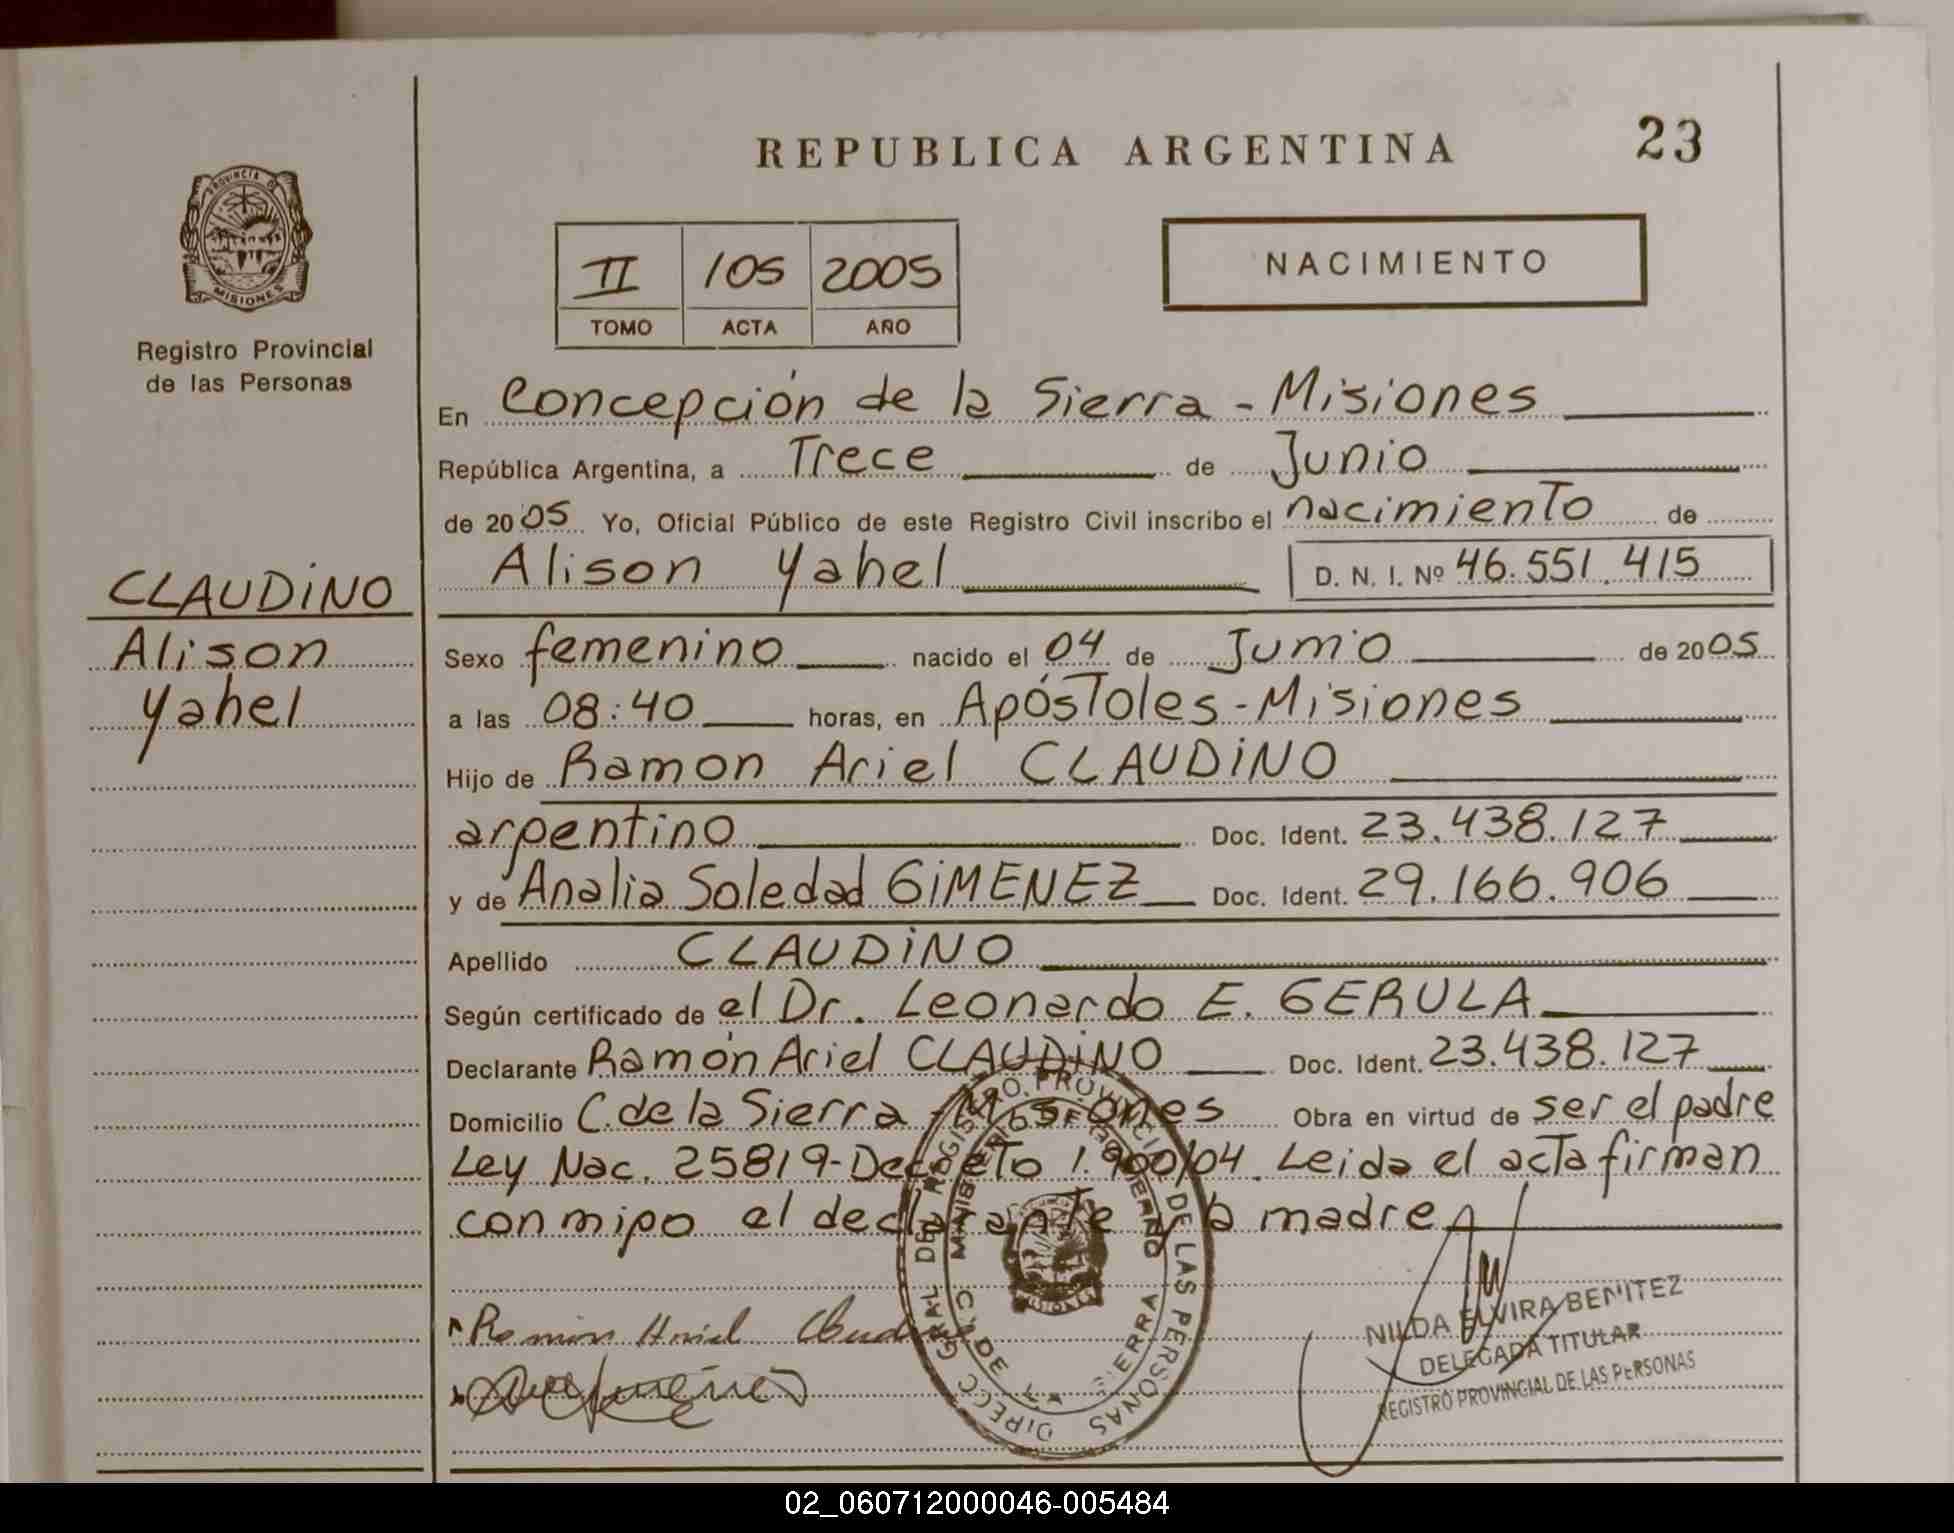 REPUBLICA ARGENTINA
23
PROVINCIA DE
MISIONES
Registro Provincial
de las Personas
II 105 2005
TOMO ACTA AÑO
NACIMIENTO
En Concepción de la Sierra - Misiones
República Argentina, a Trece de Junio
de 2005 Yo, Oficial Público de este Registro Civil inscribo el nacimiento de
Alison Yahel D. N. I. Nº 46.551.415
CLAUDINO
Alison
Yahel
Sexo femenino nacido el 04 de Junio de 2005
a las 08:40 horas, en Apóstoles - Misiones
Hijo de Ramon Ariel CLAUDINO
argentino Doc. Ident. 23.438.127
y de Analia Soledad GIMENEZ Doc. Ident. 29.166.906
Apellido CLAUDINO
Según certificado de el Dr. Leonardo E. GERULA
Declarante Ramón Ariel CLAUDINO Doc. Ident. 23.438.127
Domicilio C. de la Sierra - Misiones Obra en virtud de ser el padre
Ley Nac. 25819 - Decreto 1.900/04. Leida el acta firman
conmigo el declarante y la madre
DIRECC GRAL DEL REGISTRO PROVINCIAL DE LAS PERSONAS
MINISTERIO DE GOBIERNO
C. DE SIERRA
Ramon Ariel Claudino
NILDA ELVIRA BENITEZ
DELEGADA TITULAR
REGISTRO PROVINCIAL DE LAS PERSONAS
02_060712000046-005484